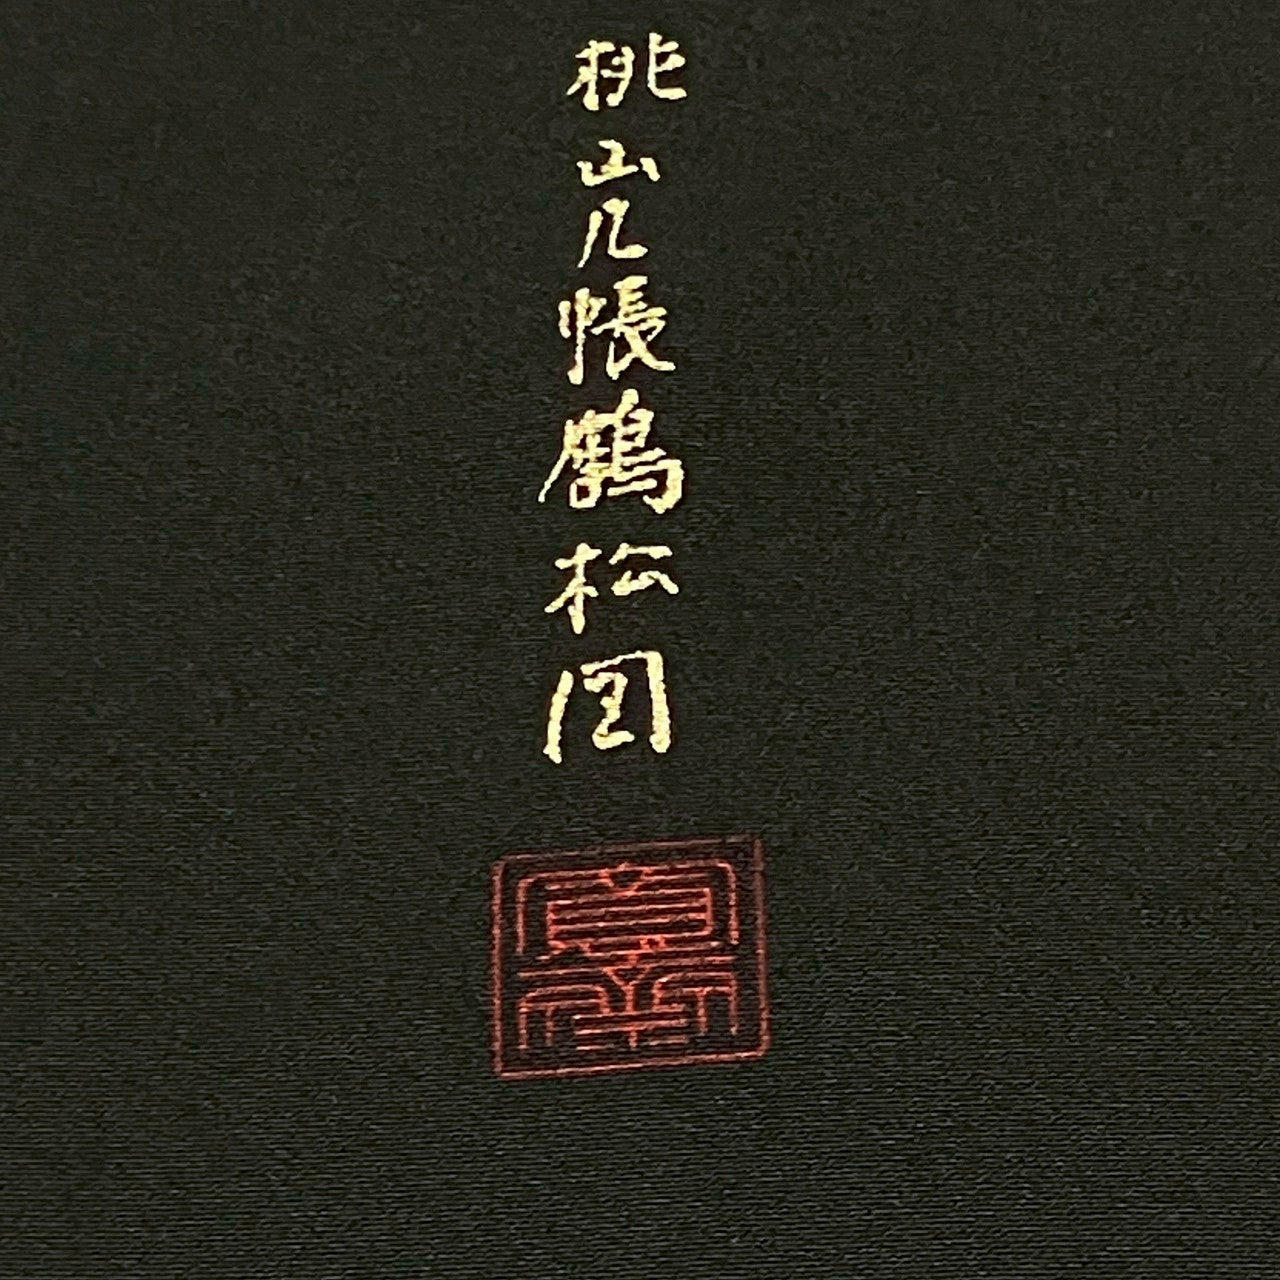 桃山几帳鶴松図